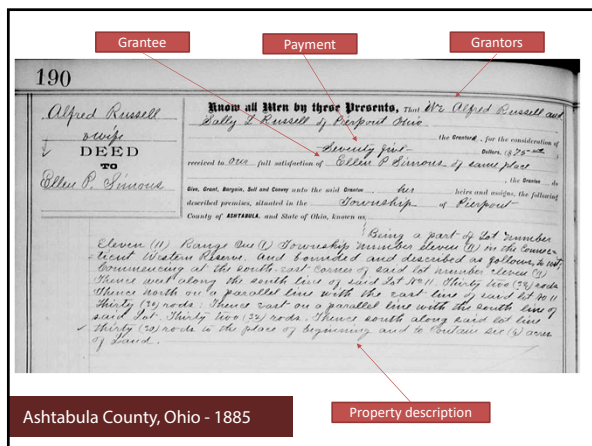 Grantee
Payment
Grantors
190
Alfred Russell
& wife
DEED
TO
Ellen P. Simons
Know all Men by these Presents, That We Alfred Russell and
Sally L Russell of Pierpont Ohio
the Grantors, for the consideration of
Seventy five Dollars, ($75
received to our full satisfaction of Ellen P Simons of same place
, the Grantee do
Give, Grant, Bargain, Sell and Convey unto the said Grantee her heirs and assigns, the following
described premises, situated in the Township of Pierpont
County of ASHTABULA, and State of Ohio, known as
Being a part of Lot number
Eleven (11) Range One (1) Township number eleven (11) in the Connec-
ticut Western Reserve. And bounded and described as follows, to wit,
Commencing at the south-east corner of said lot number eleven (11)
Thence west along the south line of said Lot No 11. Thirty two (32) rods
Thence north on a parallel line with the east line of said lot No 11
Thirty (30) rods. Thence east on a parallel line with the south line of
said Lot. Thirty two (32) rods. Thence south along said lot line
thirty (30) rods to the place of beginning and to contain six (6) acres
of Land.
Ashtabula County, Ohio - 1885
Property description